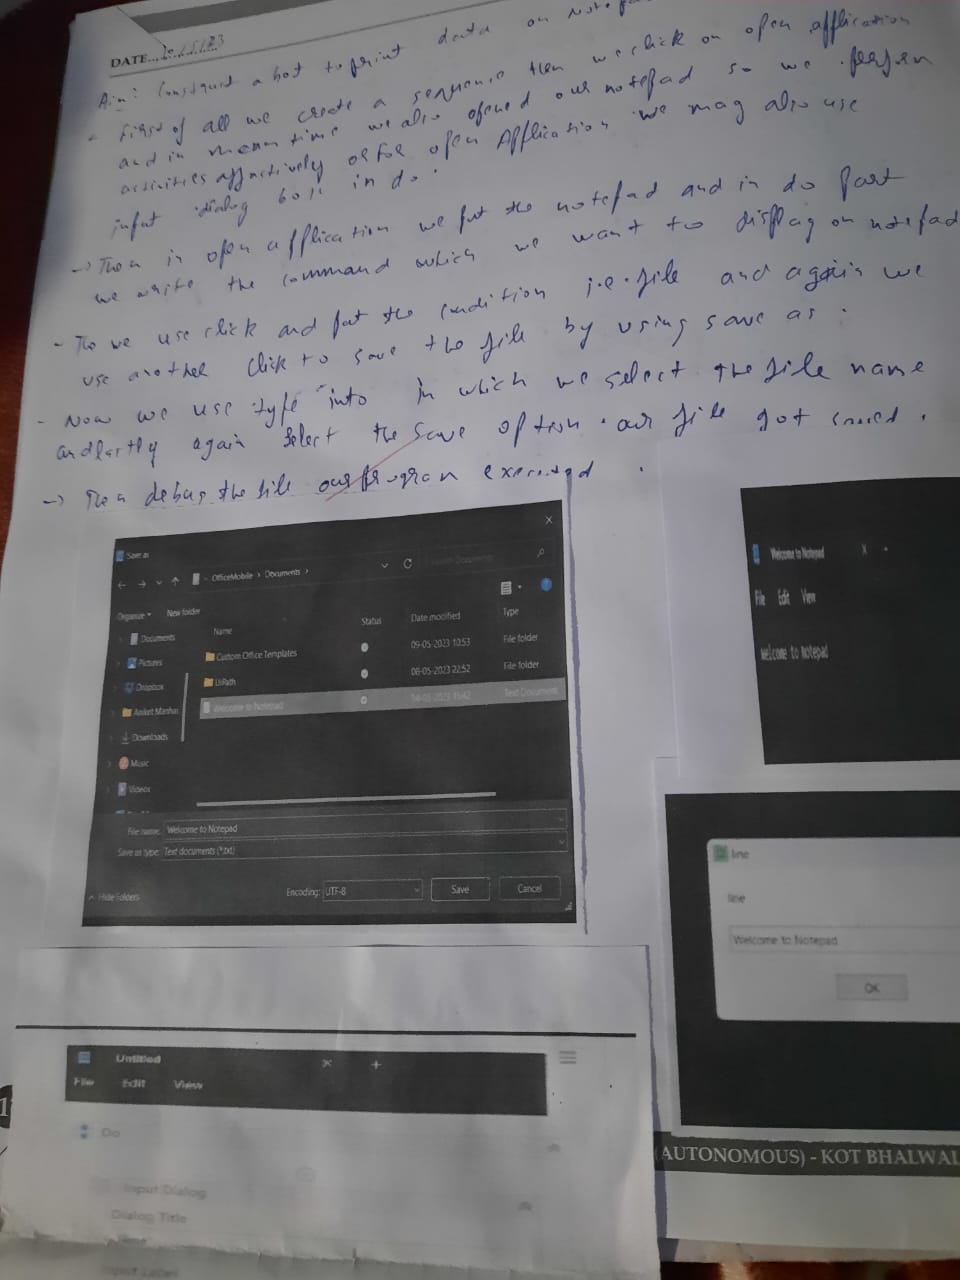 DATE
Aim: Construct a bot to print data on Notepad
- First of all we create a sequence then we click on open application
and in mean time we also opened our notepad so we perform
activities effectively before open Application we may also use
input dialog box in do.
→ Then in open application we put the notepad and in do part
we write the command which we want to display on notepad
- The we use click and put the condition i.e. file and again we
use another click to save the file by using save as.
- Now we use "type into in which we select the file name
and lastly again select the save option. our file got saved.
→ Then debug the file our program executed.
Save as
OfficeMobile > Documents >
Organize New folder
Name Status Date modified Type
Documents
Pictures
Dropbox
Aniket Manhas
Downloads
Music
Videos
Custom Office Templates 09-05-2023 10:53 File folder
UiPath 08-05-2023 22:52 File folder
Welcome to Notepad Text Document
File name: Welcome to Notepad
Save as type: Text documents (*.txt)
Hide Folders Encoding: UTF-8 Save Cancel
Welcome to Notepad X +
File Edit View
welcome to notepad
line
line
Welcome to Notepad
OK
Untitled × +
File Edit View
Do
Input Dialog
Dialog Title
Input Label
(AUTONOMOUS) - KOT BHALWAL